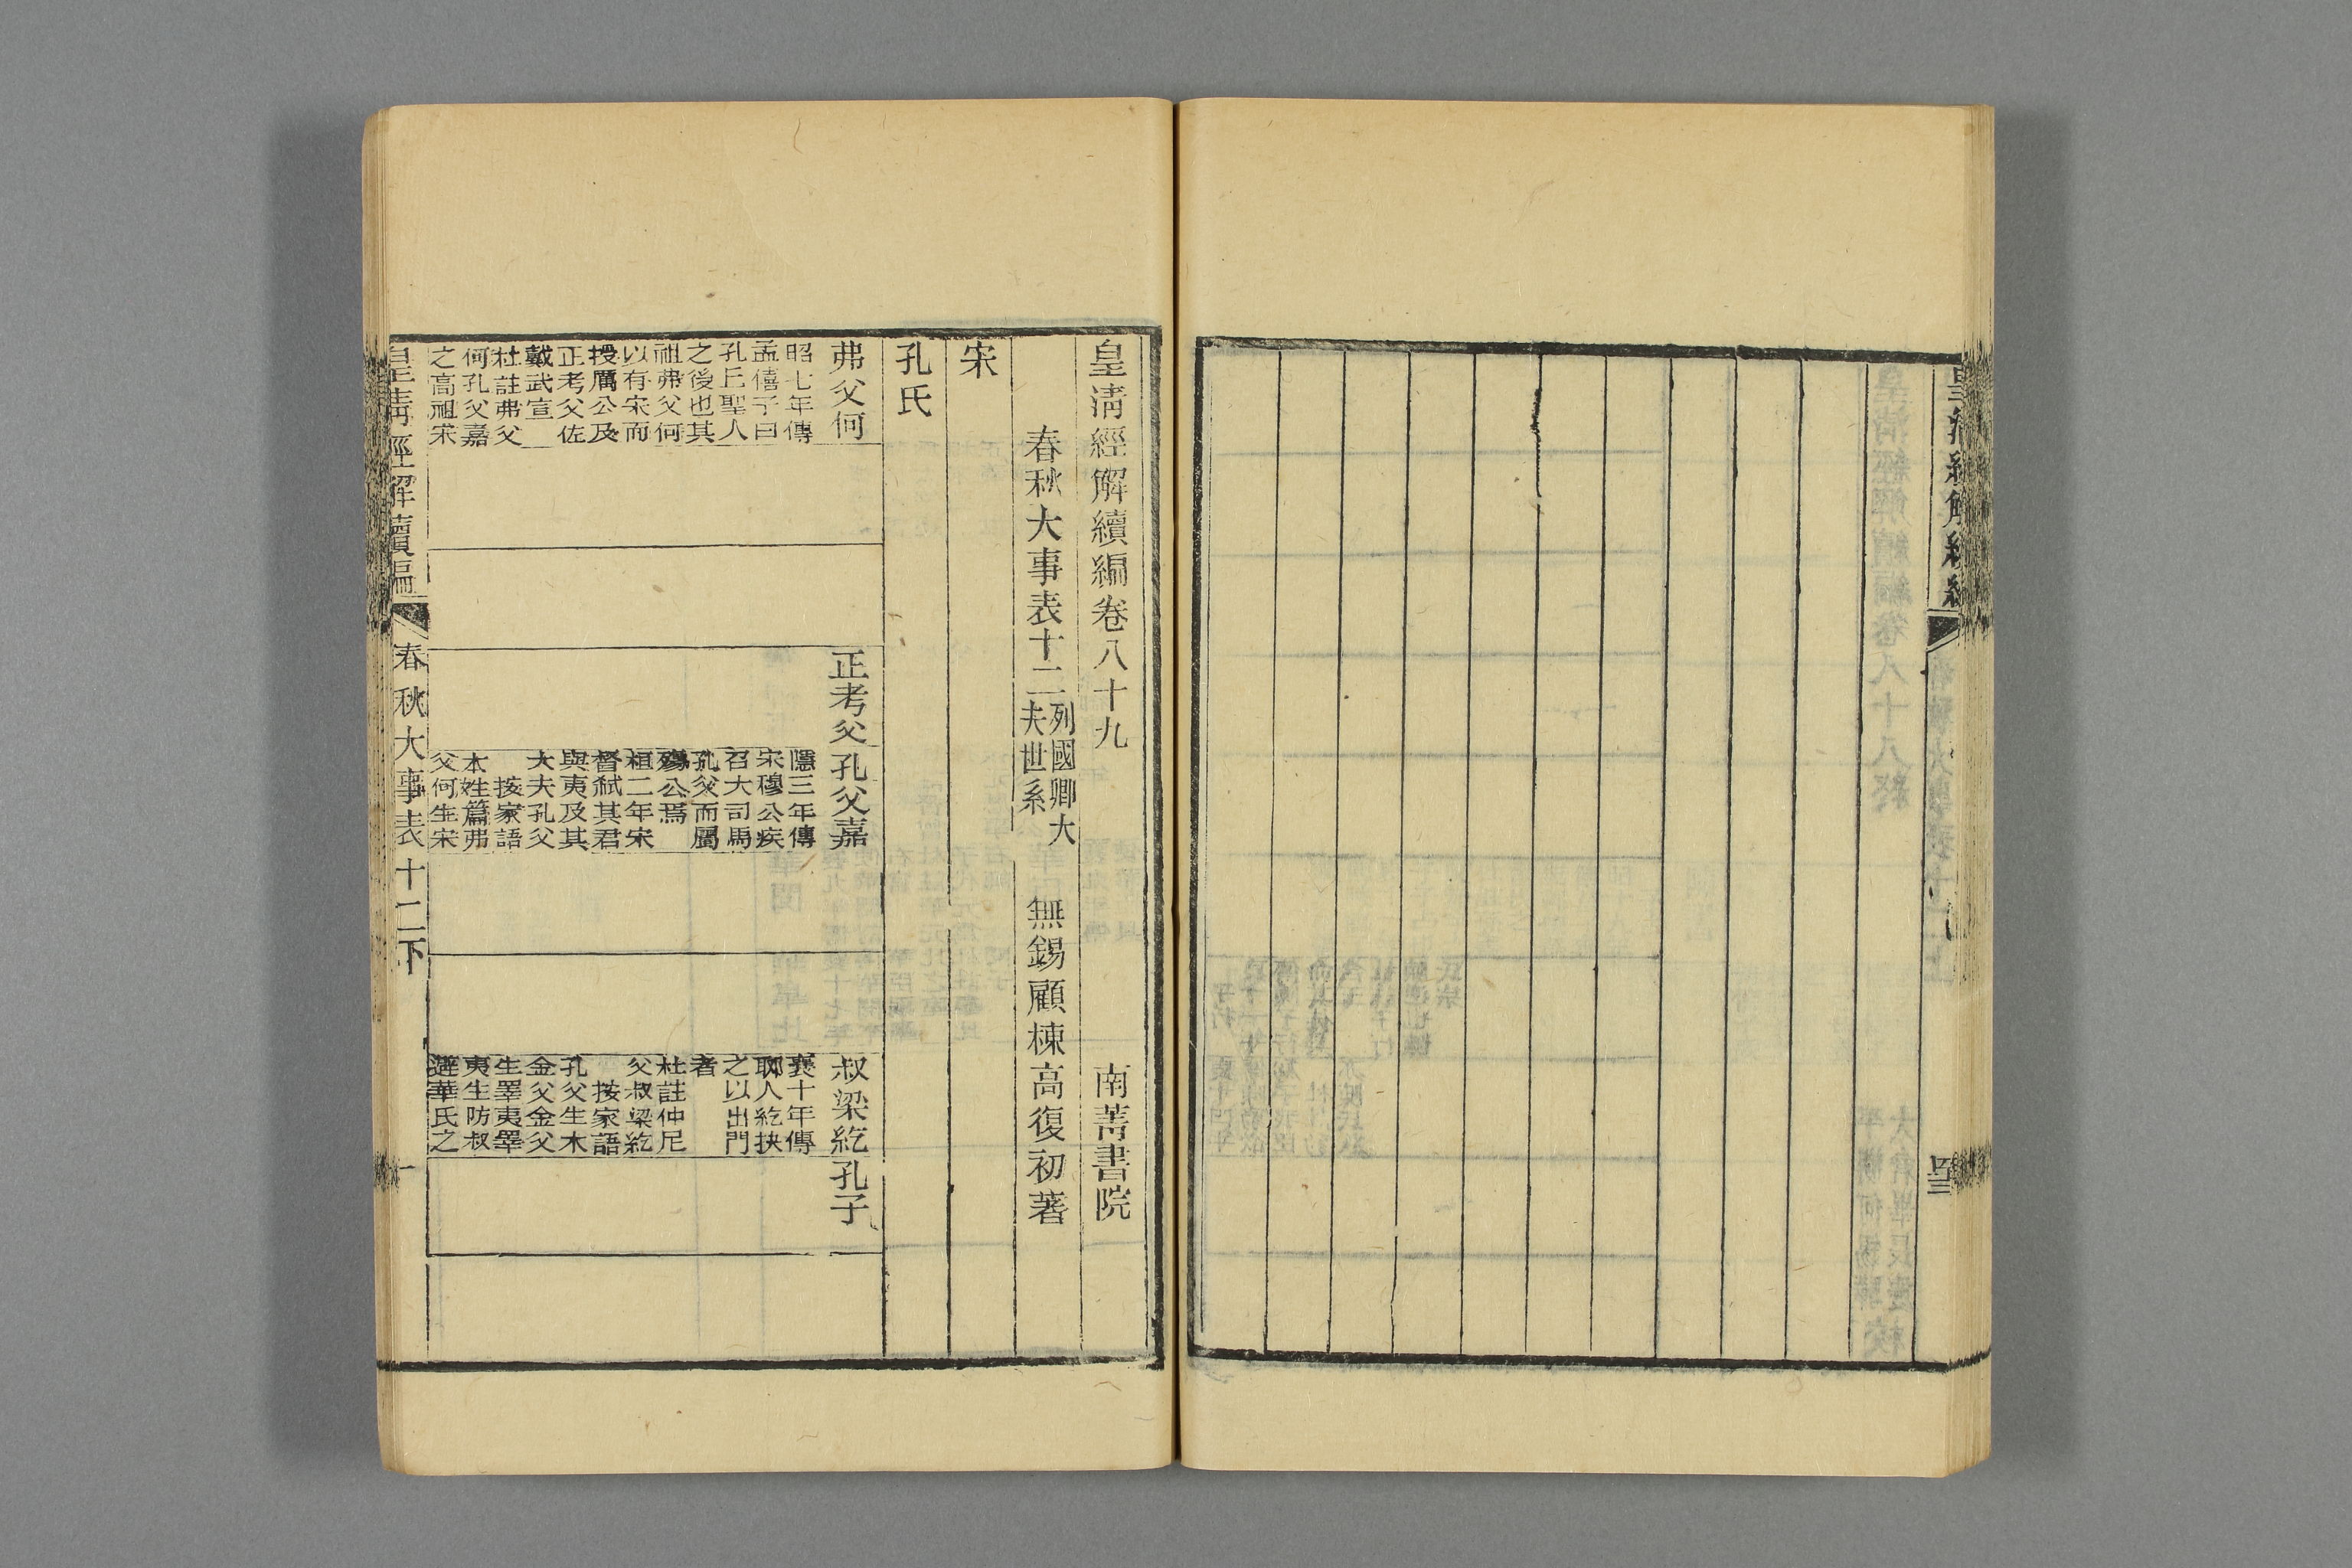 皇清經解續編卷八十九
南菁書院
春秋大事表十二
列國卿大
夫世系
無錫顧棟高復初著
宋
孔氏
弗父何
昭七年傳
孟僖子曰
孔丘聖人
之後也其
祖弗父何
以有宋而
授厲公及
正考父佐
戴武宣
杜註弗父
何孔父嘉
之高祖宋
正考父
孔父嘉
隱三年傳
宋穆公疾
召大司馬
孔父而屬
殤公焉
桓二年宋
督弒其君
與夷及其
大夫孔父
按家語
本姓篇弗
父何生宋
叔梁紇
襄十年傳
聊人紇抉
之以出門
者
杜註仲尼
父叔梁紇
按家語
孔父生木
金父金父
生睪夷睪
夷生防叔
避華氏之
孔子
皇清經解續編
春秋大事表十二下
一